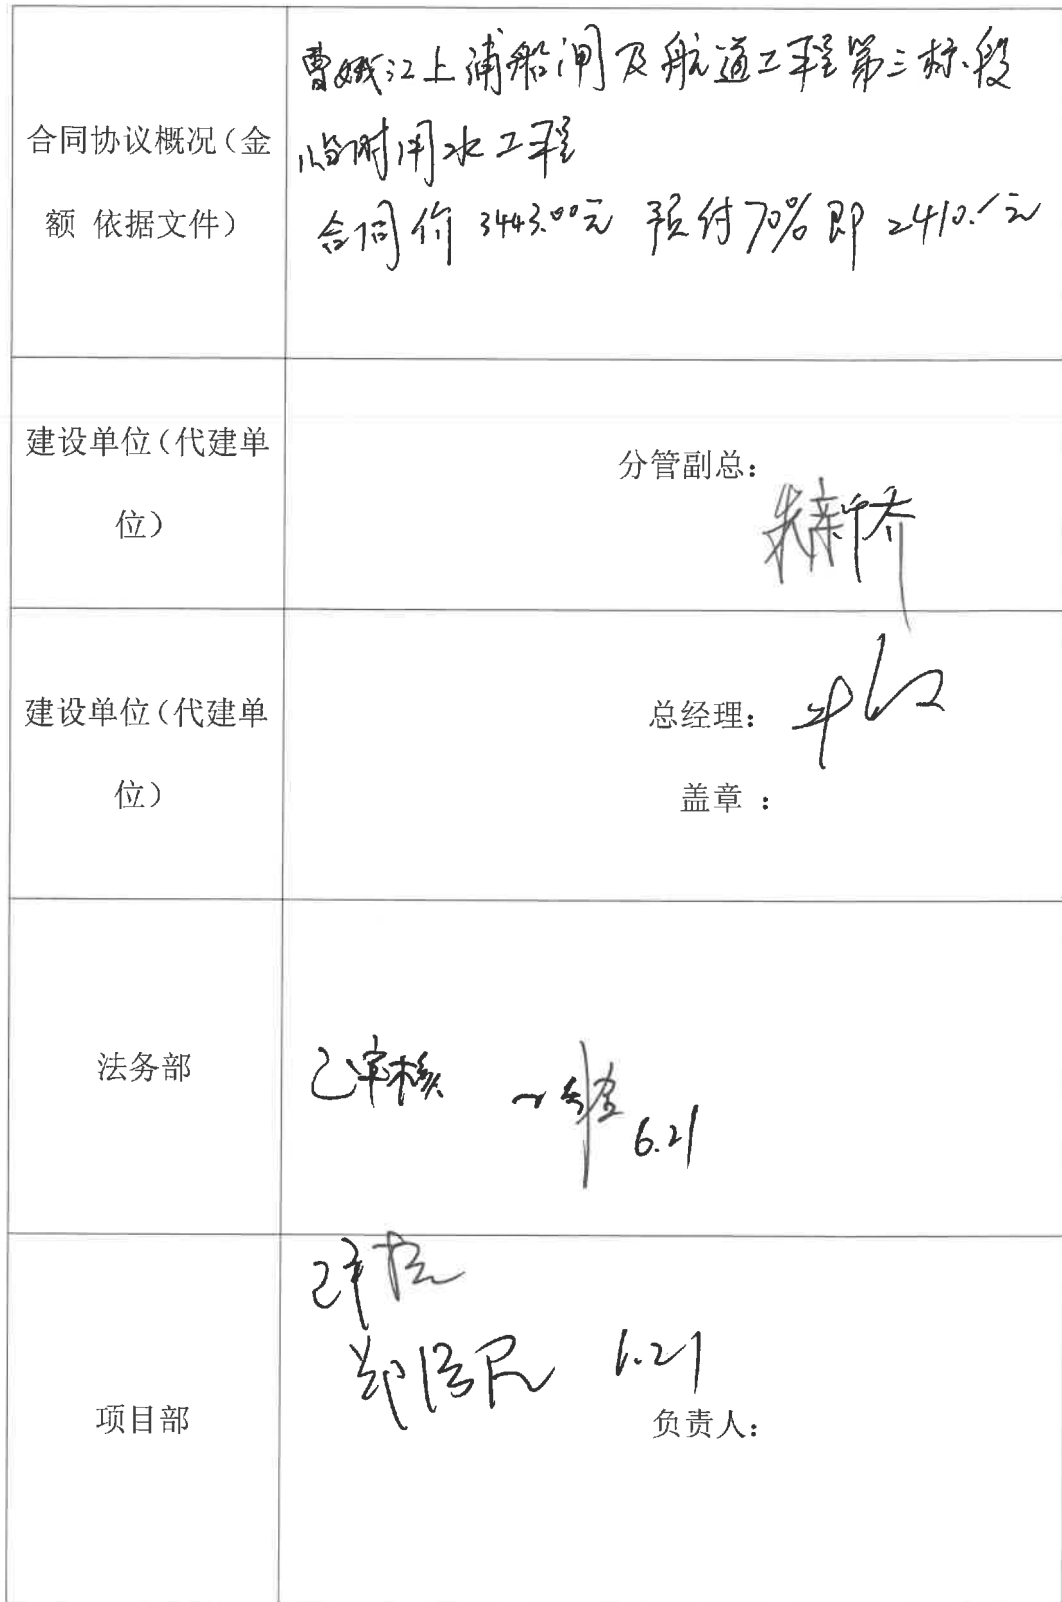 合同协议概况（金
额 依据文件）
曹娥江上浦船闸及航道工程第三标段
临时用水工程
合同价 3443.00元 预付70%即 2410.1元
建设单位（代建单
位）
分管副总：
建设单位（代建单
位）
总经理：
盖章 ：
法务部
已审核
6.21
项目部
已审核
6.21
负责人：